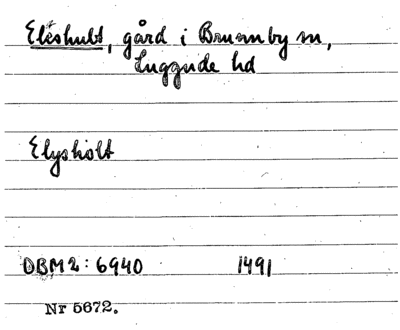 Eleshult, gård i Brunnby sn,
Luggude hd
Elysholt
DBM2: 6940 1491
Nr 5672.